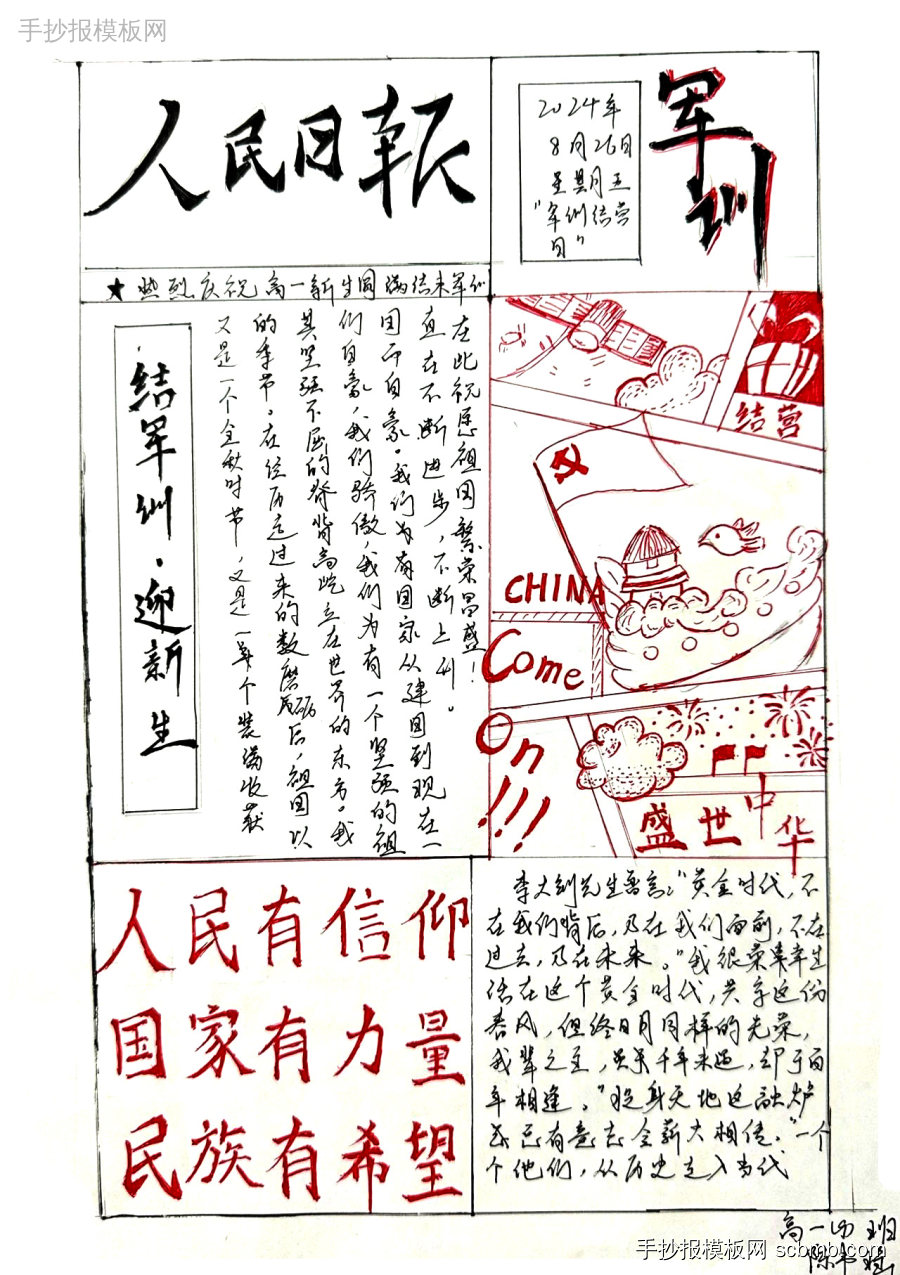 手抄报模板网
人民日报
2024年
8月26日
星期五
"军训结营
日"
军训
★热烈庆祝高一新生圆满结束军训
结军训·迎新生
又是一个金秋时节,又是一年个装满收获
的季节。在经历过来的数磨砺后,祖国以
其坚强不屈的脊背高屹立在世界的东方。我
们自豪,我们骄傲,我们为有一个坚强的祖
国而自豪。我们为有国家从建国到现在一
直在不断进步,不断上升。
在此祝愿祖国繁荣昌盛!
结营
CHINA
Come
On!!!
盛世中华
人民有信仰
国家有力量
民族有希望
李大钊先生曾言:"黄金时代,不
在我们背后,乃在我们面前,不在
过去,乃在未来。"我很荣幸幸生
活在这个黄金时代,共享这份
春风,但终日月同样的光荣,
我辈之至,虽于千年未遇,却于百
年相逢。"投身天地这融炉
一个
个他们,从历史走入当代
高一 班
手抄报模板网 scbmb.com